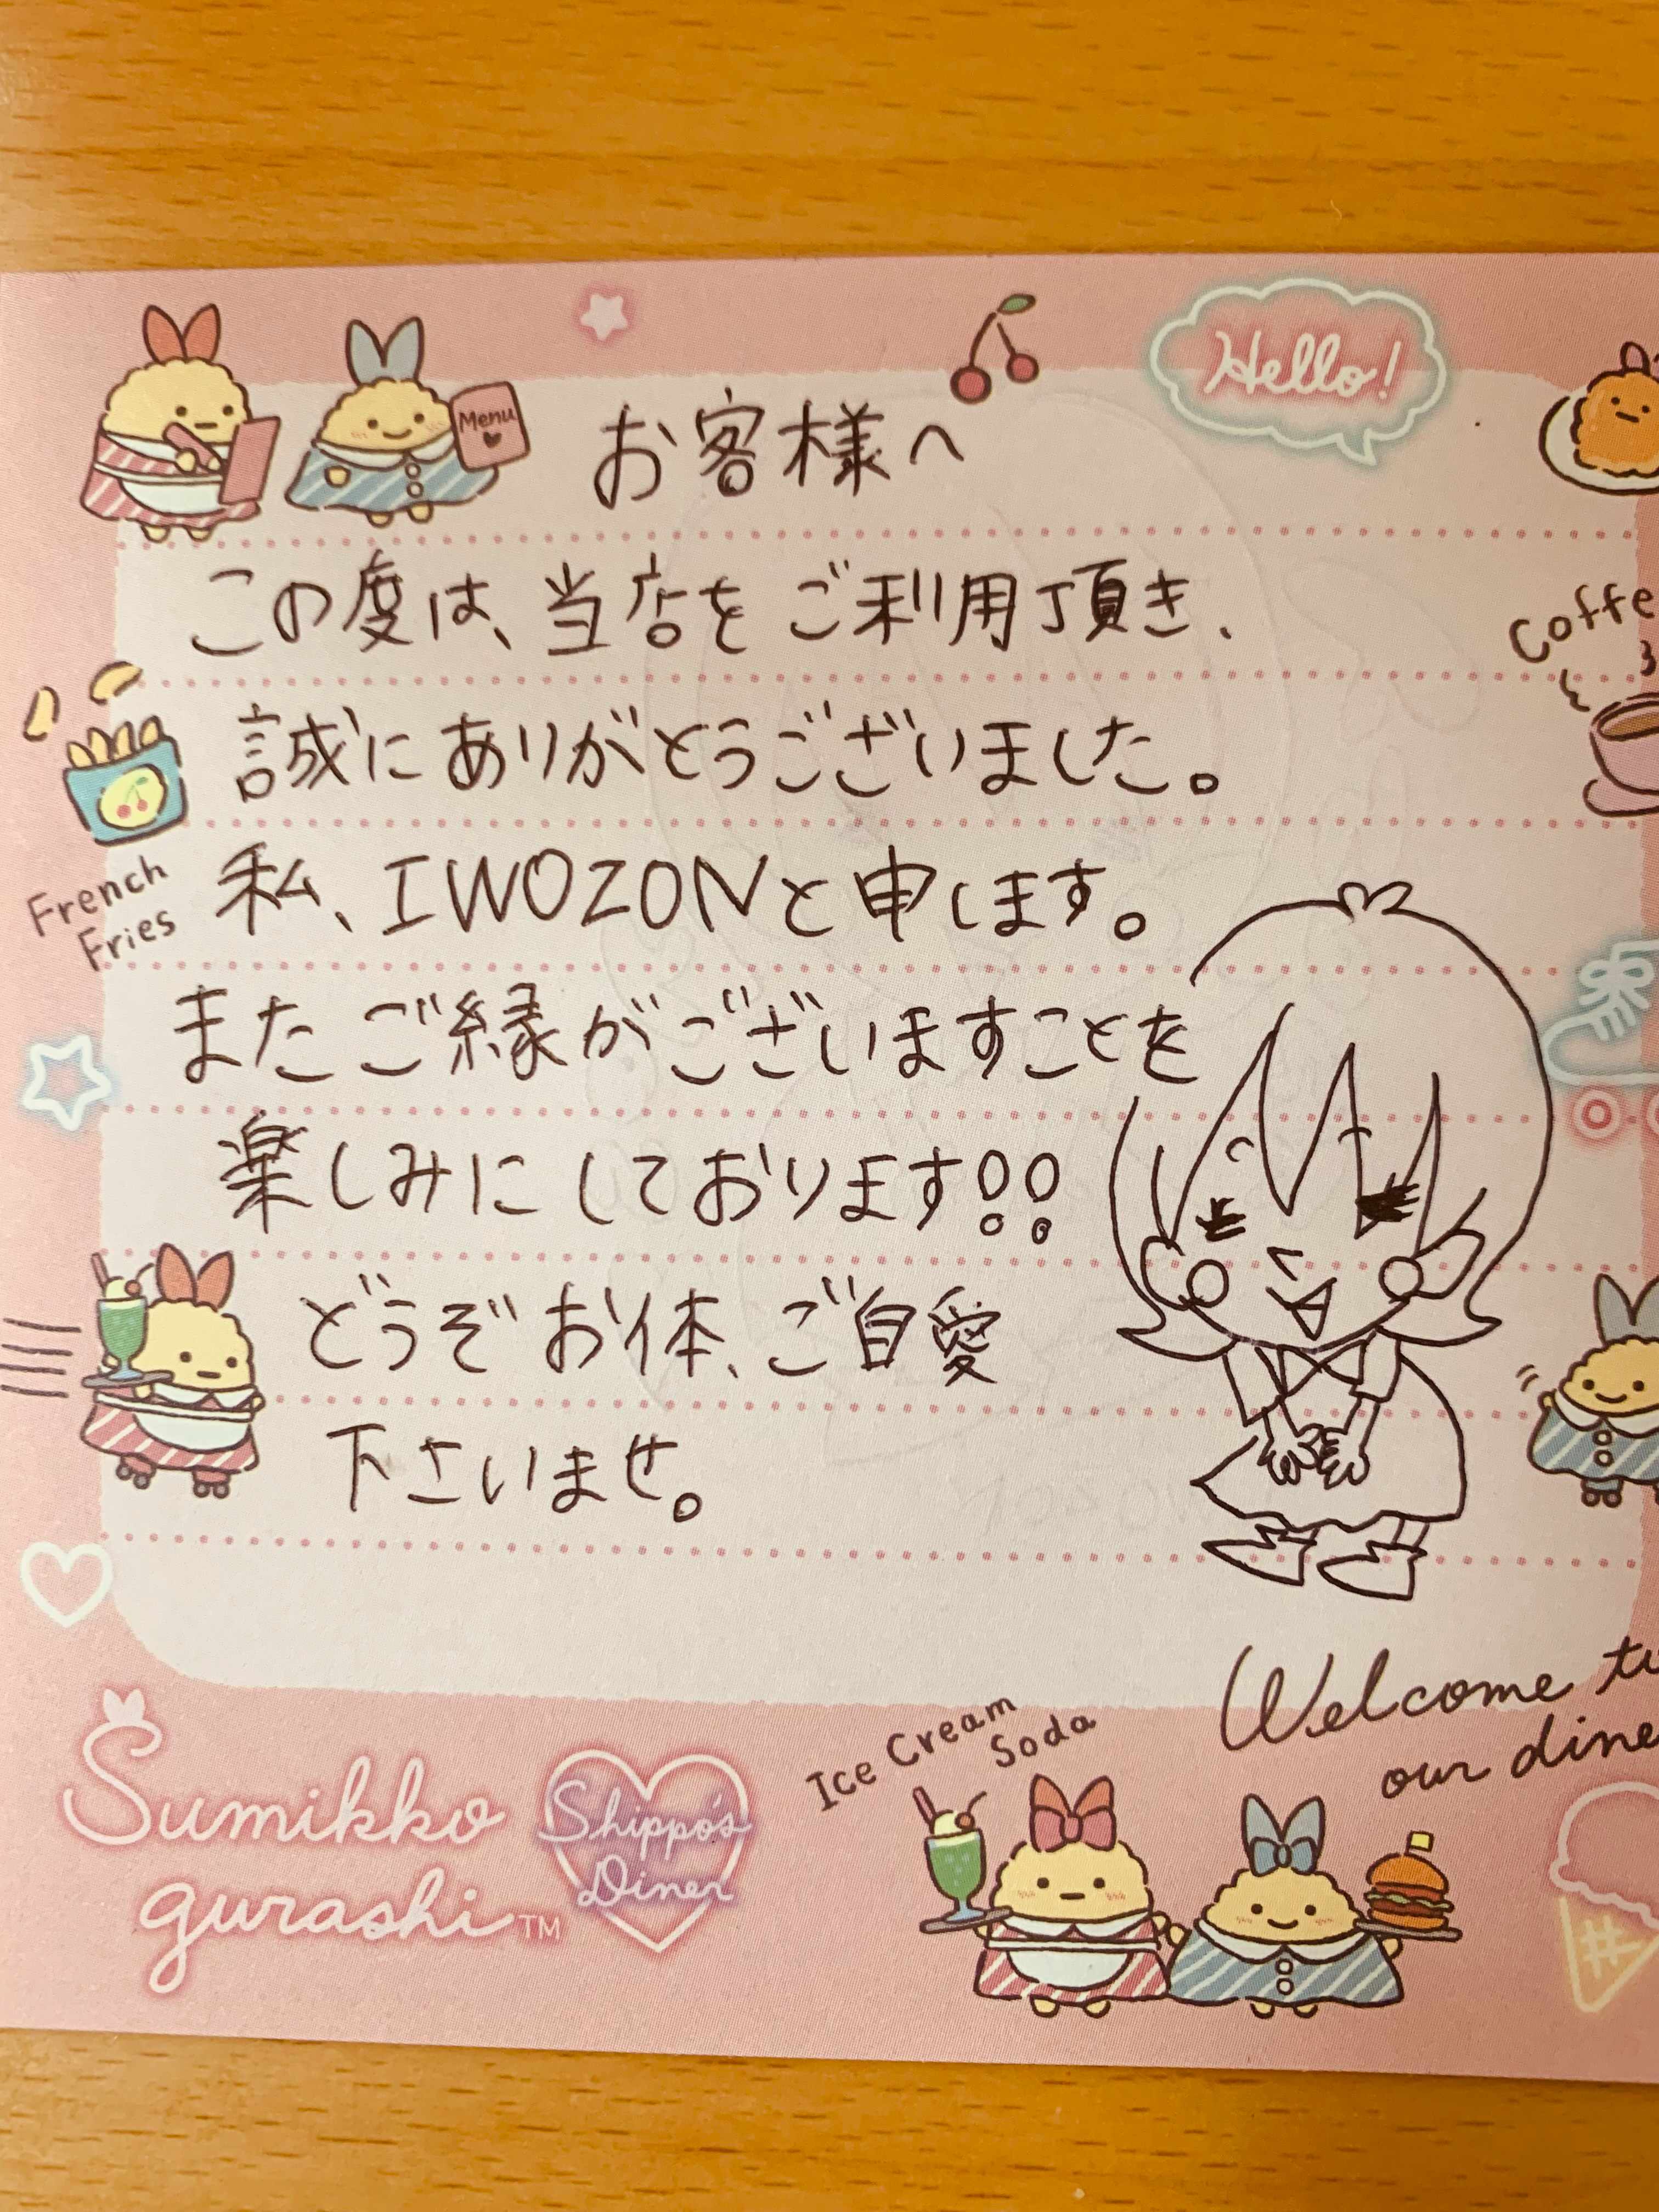 Hello!
Menu
お客様へ
この度は、当店をご利用頂き、
Coffe
誠にありがとうございました。
French
Fries
私、IWOZONと申します。
またご縁がございますことを
楽しみにしております!!
どうぞお体、ご自愛
下さいませ。
Welcome to
our dine
Ice Cream
Soda
Sumikko
gurashi™
Shippo's
Diner